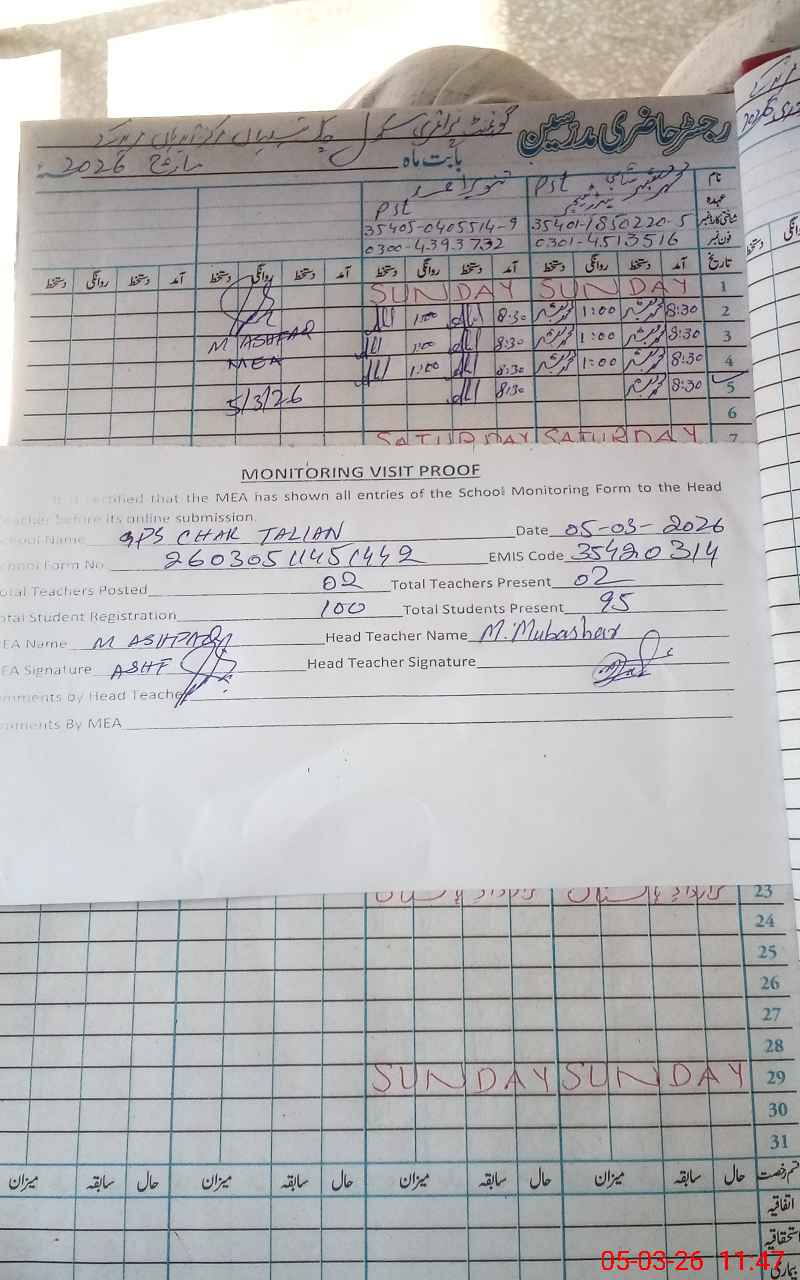 رجسٹر حاضری مدرسین گورنمنٹ پرائمری سکول
بابت ماہ مارچ 2026
نام
عہدہ Pst Pst
شناختی کارڈ نمبر 35401-1850220-5 35405-0405514-9
فون نمبر 0301-4513516 0300-4393732
تاریخ آمد دستخط روانگی دستخط آمد دستخط روانگی دستخط آمد دستخط روانگی دستخط آمد دستخط روانگی دستخط
1 SUNDAY SUNDAY
2 8:30 1:00 8:30 1:00
3 8:30 1:00 8:30 1:00 M ASHFAQ
4 8:30 1:00 8:30 1:00 MEA
5 8:30 8:30 5/3/26
6
7 SATURDAY SATURDAY
MONITORING VISIT PROOF
It is certified that the MEA has shown all entries of the School Monitoring Form to the Head
Teacher before its online submission.
School Name GPS CHAR TALIAN Date 05-03-2026
School Form No 26030511451442 EMIS Code 35420314
Total Teachers Posted 02 Total Teachers Present 02
Total Student Registration 100 Total Students Present 95
MEA Name M ASHFAQ Head Teacher Name M. Mubashar
MEA Signature ASHF Head Teacher Signature
Comments by Head Teacher
Comments By MEA
23
24
25
26
27
28
29 SUNDAY SUNDAY
30
31
قسم رخصت حال سابقہ میزان حال سابقہ میزان حال سابقہ میزان حال سابقہ میزان
اتفاقیہ
استحقاقیہ
بیماری
05-03-26 11.47